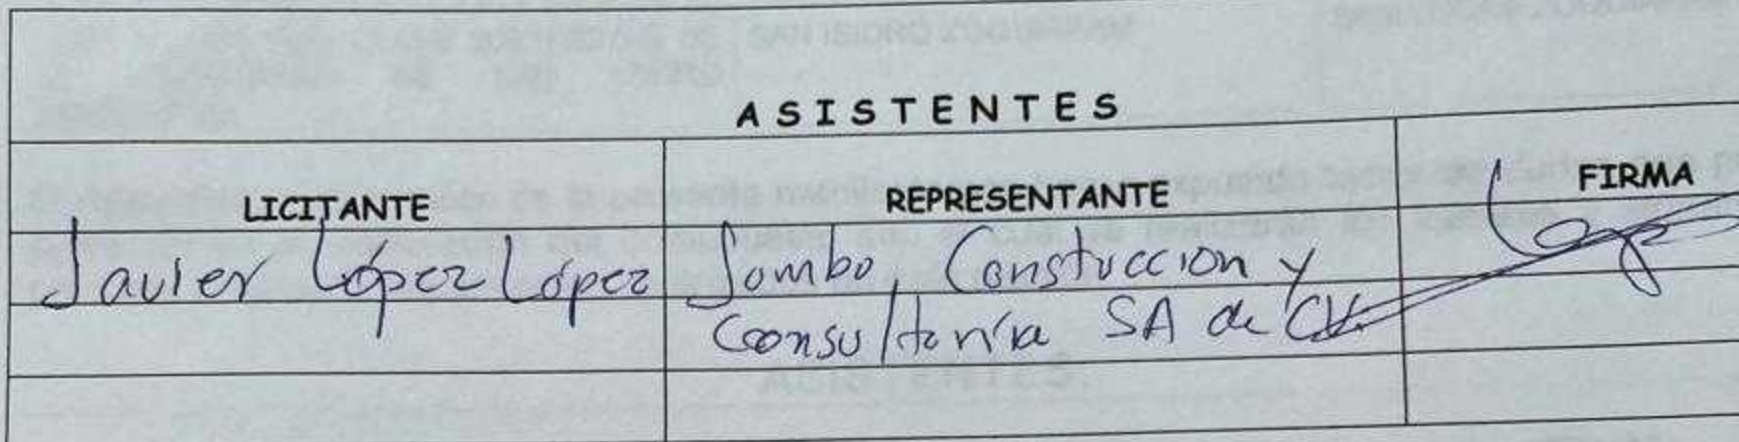 ASISTENTES
LICITANTE REPRESENTANTE FIRMA
Javier López López Jombo, Constuccion y
Consultoría SA de CV.